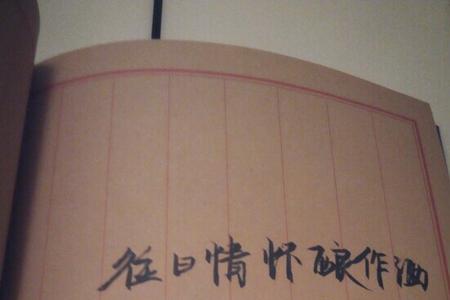 往日情怀酿作酒